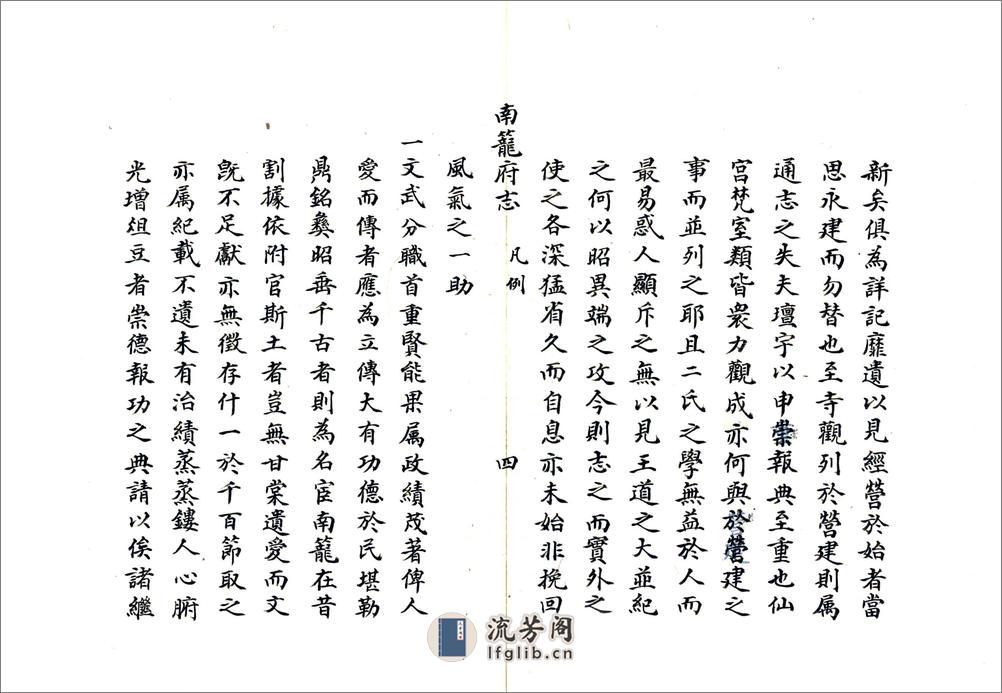 新矣俱為詳記靡遺以見經營於始者當
思永建而勿替也至寺觀列於營建則属
通志之失夫壇宇以申崇報典至重也仙
宫梵室類皆衆力觀成亦何與於營建之
事而並列之耶且二氏之學無益於人而
最易惑人顯斥之無以見王道之大並紀
之何以昭異端之攻今則志之而實外之
使之各深猛省久而自息亦未始非挽回
南籠府志
凡例
四
風氣之一助
一文武分職首重賢能果属政績茂著俾人
愛而傳者應為立傳大有功德於民堪勒
鼎銘彝昭垂千古者則為名宦南籠在昔
割據依附官斯土者豈無甘棠遺愛而文
既不足獻亦無徵存什一於千百節取之
亦属紀載不遺未有治績蒸蒸鏤人心腑
光增俎豆者崇德報功之典請以俟諸繼
流芳阁
lfglib.cn